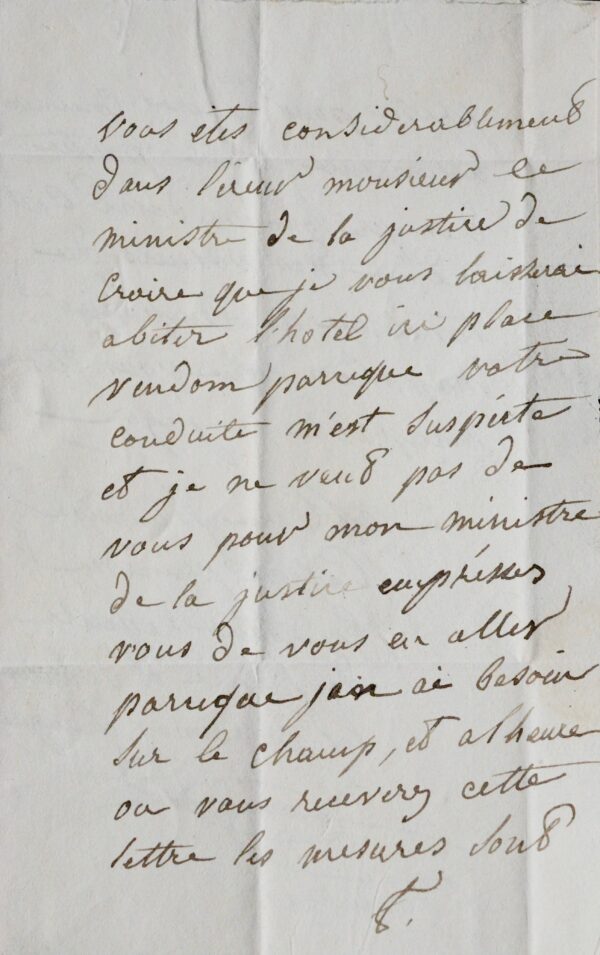 vous etes considerablement
dans l'ereur monsieur le
ministre de la justice de
croire que je vous laisserai
abiter l'hotel ici place
vendom parceque votre
conduite m'est suspecte
et je ne veut pas de
vous pour mon ministre
de la justice empréssez
vous de vous en aller
parceque jan ai besoin
sur le champ, et alheure
ou vous receverez cette
lettre les mesures sont